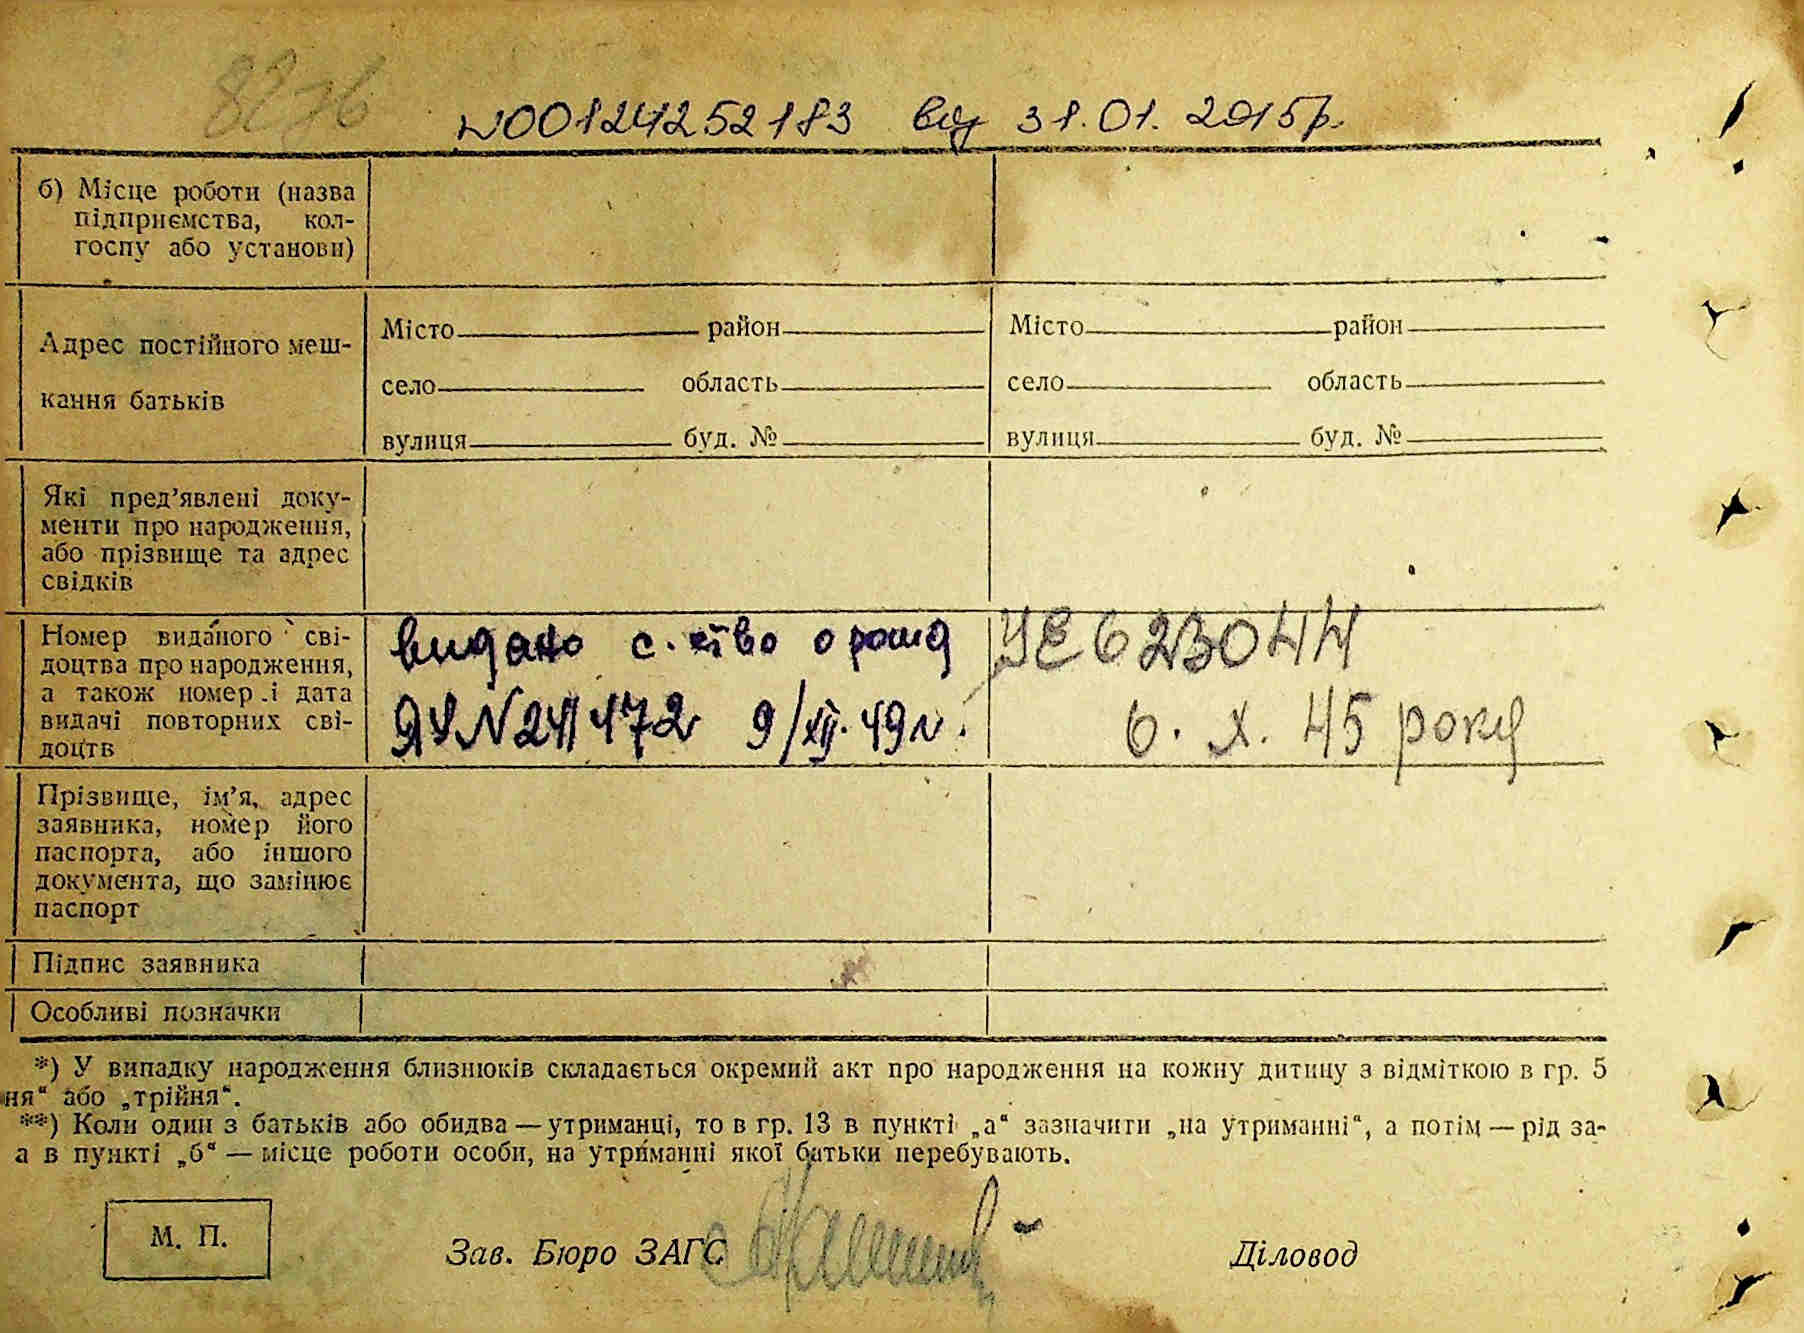 N00124252183 від 31.01.2015р.
б) Місце роботи (назва
підприємства, кол-
госпу або установи)
Адрес постійного меш-
кання батьків
Місто район
село область
вулиця буд. №
Місто район
село область
вулиця буд. №
Які пред’явлені доку-
менти про народження,
або прізвище та адрес
свідків
Номер виданого сві-
доцтва про народження,
а також номер і дата
видачі повторних сві-
доцтв
видано с.
N241172 9/XII.49
УЄ 623044
6. X. 45 року
Прізвище, ім’я, адрес
заявника, номер його
паспорта, або іншого
документа, що замінює
паспорт
Підпис заявника
Особливі позначки
*) У випадку народження близнюків складається окремий акт про народження на кожну дитину з відміткою в гр. 5
ня“ або „трійня“.
**) Коли один з батьків або обидва — утриманці, то в гр. 13 в пункті „а“ зазначити „на утриманні“, а потім — рід за-
а в пункті „б“ — місце роботи особи, на утриманні якої батьки перебувають.
М. П.
Зав. Бюро ЗАГС
Діловод